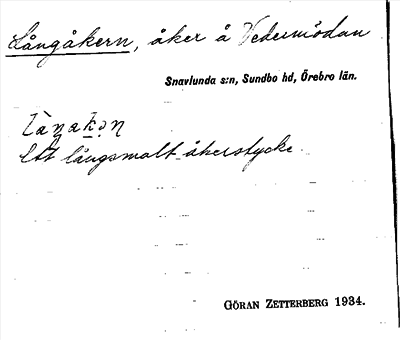 Långåkern, åker å Vedermödan
Snavlunda s:n, Sundbo hd, Örebro län.
Ett långsmalt åkerstycke
GÖRAN ZETTERBERG 1934.